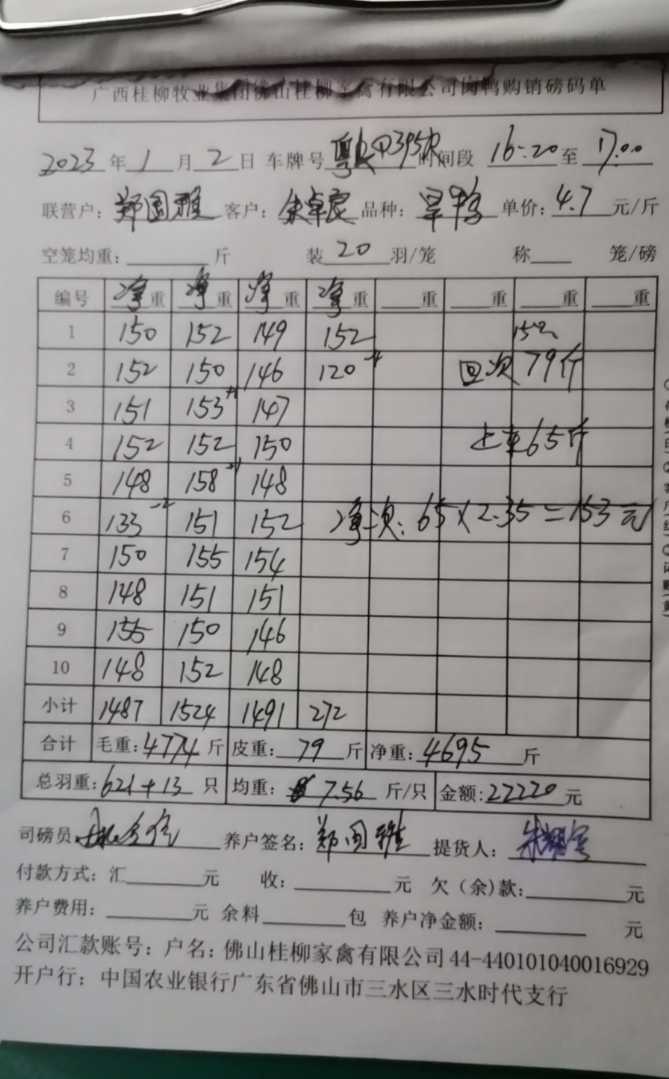 广西桂柳牧业集团佛山桂柳家禽有限公司肉鸭购销磅码单
2023年1月2日 车牌号 时间段 16:20至17:00
联营户：郑国雅 客户：朱卓良 品种：旱鸭 单价：4.7元/斤
空笼均重：____斤 装20羽/笼 称____笼/磅
编号 净重 净重 净重 净重 __重 __重 __重 __重
1 150 152 149 152 152
2 152 150 146 120⁻⁴ 回次79斤
3 151 153⁺¹ 147
4 152 152 150 上车65斤
5 148 158⁺¹ 148
6 133⁻² 151 152 净次：65×2.35=153元
7 150 155 154
8 148 151 151
9 155 150 146
10 148 152 148
小计 1487 1524 1491 272
合计 毛重：4774斤 皮重：79斤 净重：4695斤
总羽重：621+13只 均重：7.56斤/只 金额：22220元
司磅员 养户签名：郑国雅 提货人：
付款方式：汇____元 收：____元 欠（余）款：____元
养户费用：____元 余料____包 养户净金额：____元
公司汇款账号：户名：佛山桂柳家禽有限公司 44-440101040016929
开户行：中国农业银行广东省佛山市三水区三水时代支行